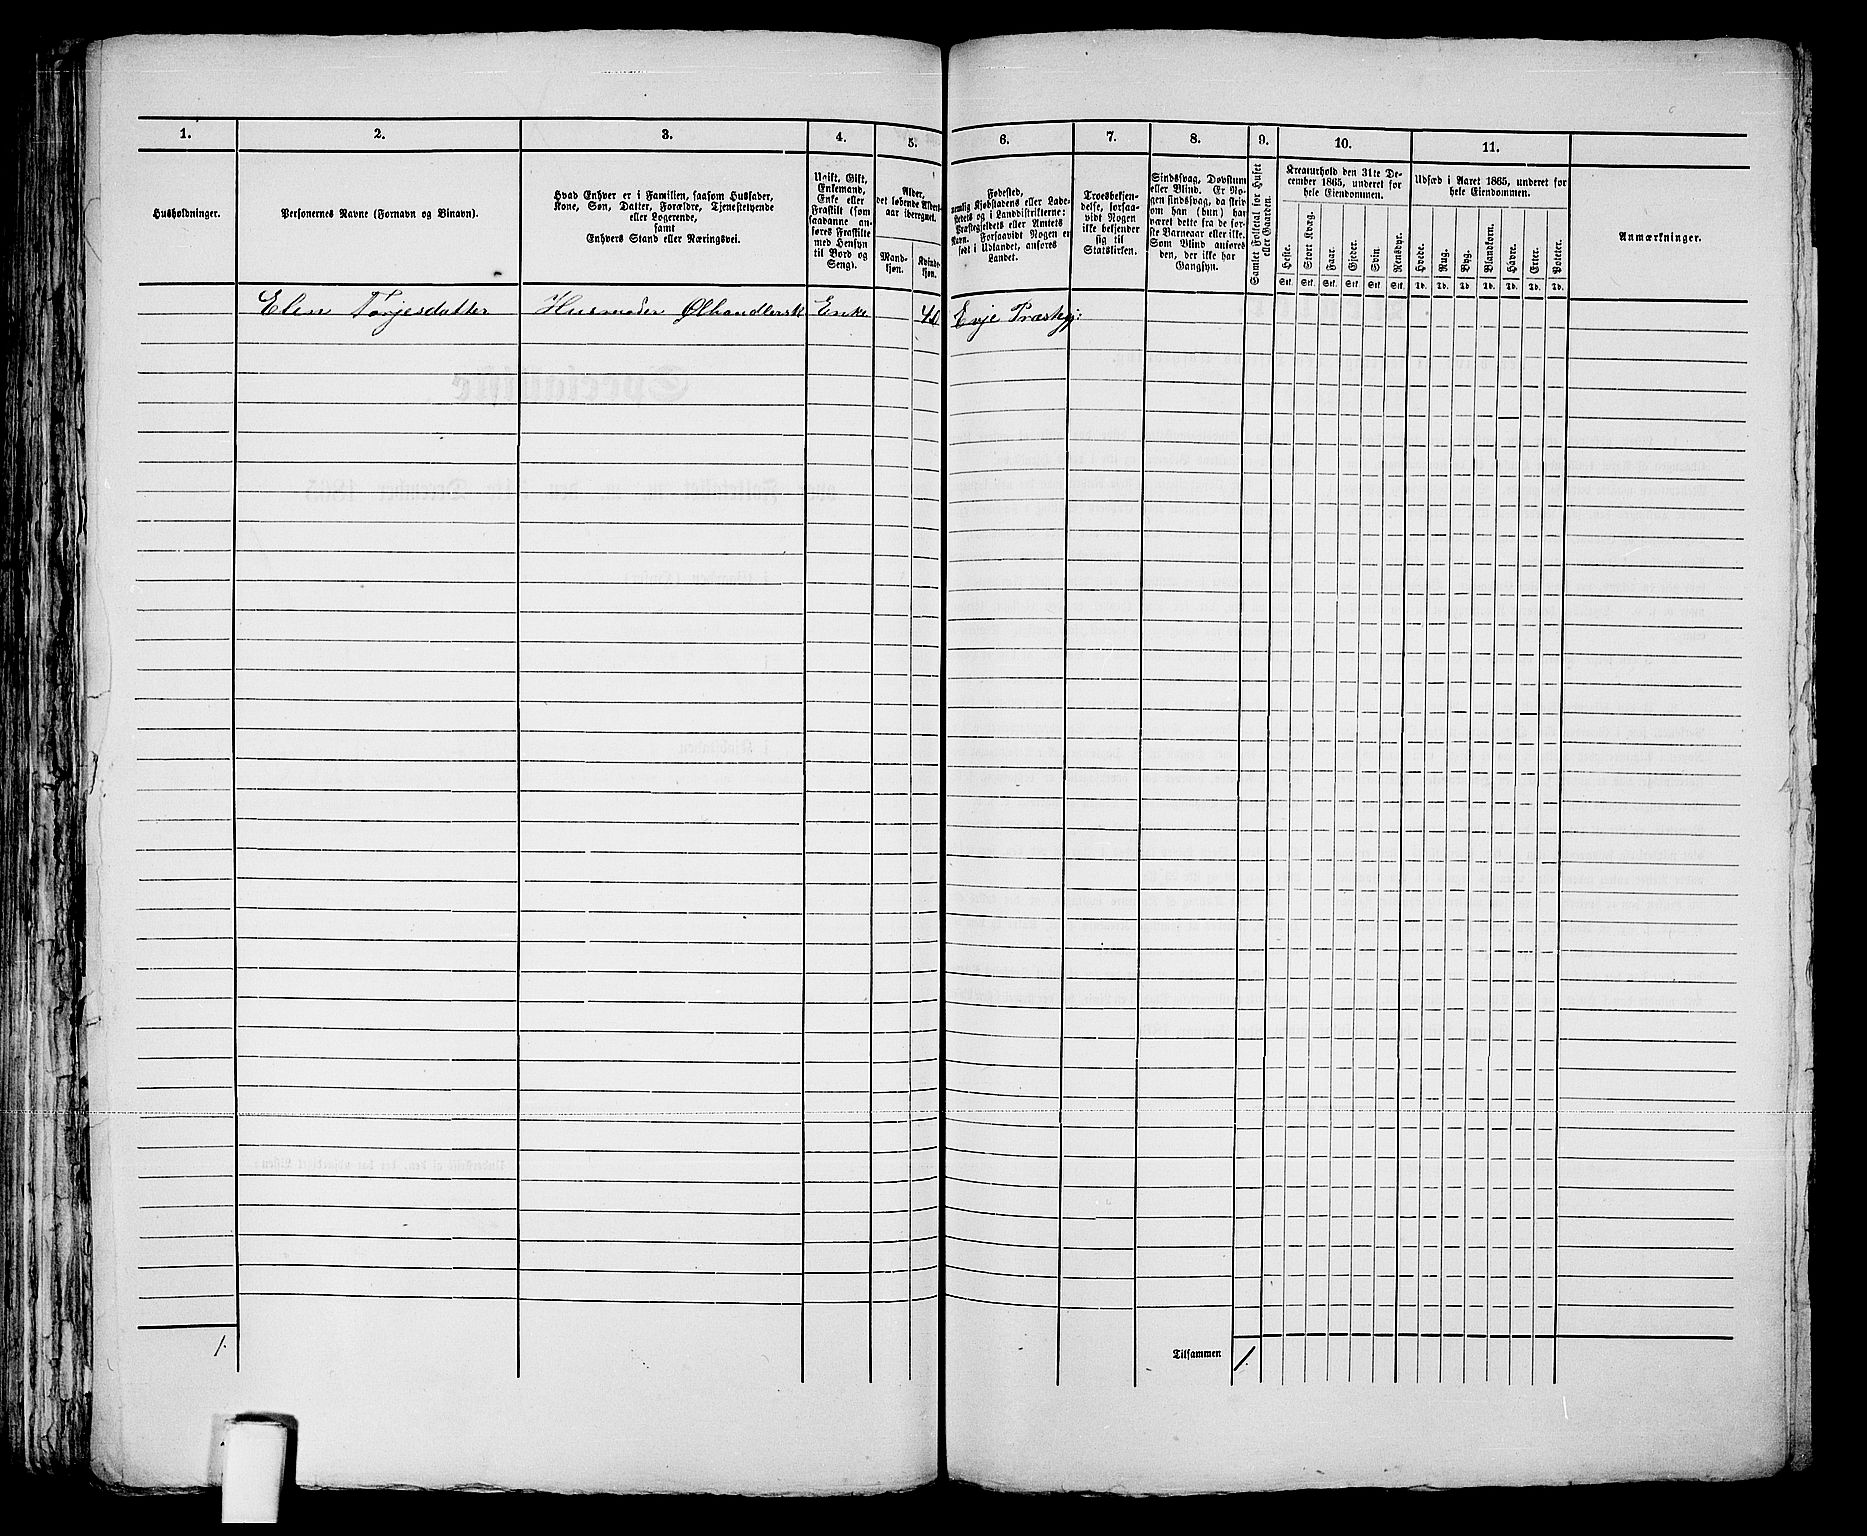 1. 2. 3. 4. 5. 6. 7. 8. 9. 10. 11.
Husholdninger.
Personernes Navne (Fornavn og Binavn).
Hvad Enhver er i Familien, saasom Husfader,
Kone, Søn, Datter, Forældre, Tjenestetyende
eller Logerende,
samt
Enhvers Stand eller Næringsvei.
Ugift, Gift,
Enkemand,
Enke eller
Fraskilt (som
saadanne an-
føres Fraskilte
med Hensyn
til Bord og
Seng).
Alder,
det løbende Alders-
aar iberegnet.
Mand-
kjøn.
Kvinde-
kjøn.
Fødested,
nemlig Kjøbstadens eller Lade-
stedets og i Landdistrikterne:
Præstegjeldets eller Amtets
Navn. Forsaavidt Nogen er
født i Udlandet, anføres
Landet.
Troesbekjen-
delse, forsaa-
vidt Nogen
ikke bekjender
sig til
Statskirken.
Sindssvag, Døvstum
eller Blind. Er No-
gen sindssvag, da skriv
om han (hun) har
været dette fra de før-
ste Barneaar eller ikke.
Som Blind anføres
den, der ikke har
Gangsyn.
Samlet Folketal for Huset
eller Gaarden.
Kreaturhold den 31te De-
cember 1865, underet for
hele Eiendommen.
Heste. Stort Kvæg. Faar. Gjeder. Svin Rensdyr.
Stk. Stk. Stk. Stk. Stk. Stk.
Udsæd i Aaret 1865, underet for
hele Eiendommen.
Hvede. Rug. Byg. Blandkorn. Havre. Erter. Poteter.
Td. Td. Td. Td. Td. Td. Td.
Anmærkninger.
Elen Torjesdatter Husmoder Ølhandlersk Enke 40 Evje Præstgj:
1.
Tilsammen 1.